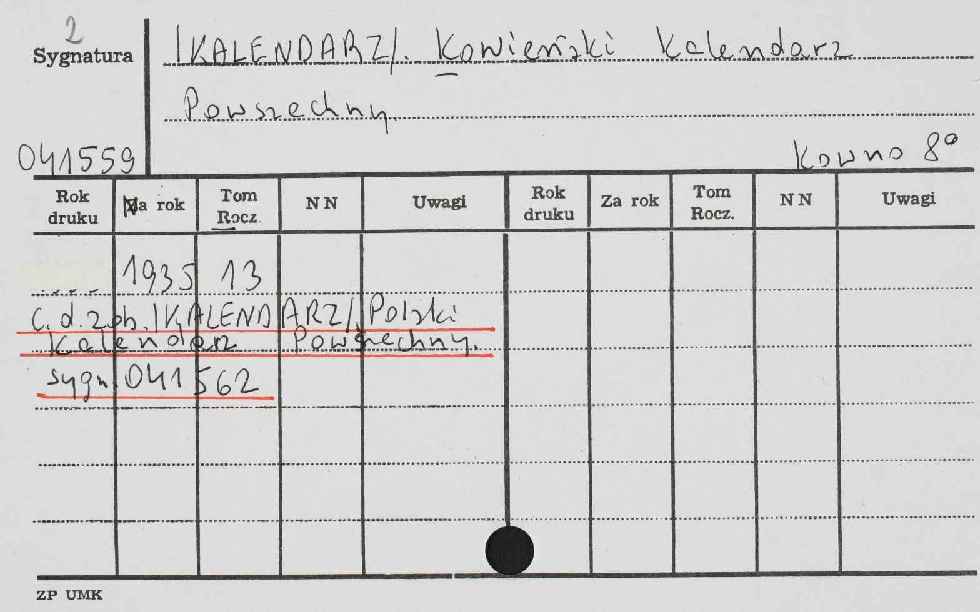 2
Sygnatura
/KALENDARZ/. Kowieński Kalendarz
Powszechny.
041559
Kowno 8°
Rok druku Na rok Tom Rocz. NN Uwagi Rok druku Za rok Tom Rocz. NN Uwagi
1935 13
c.d.zob. /KALENDARZ/. Polski
Kalendarz Powszechny.
sygn. 041562
ZP UMK